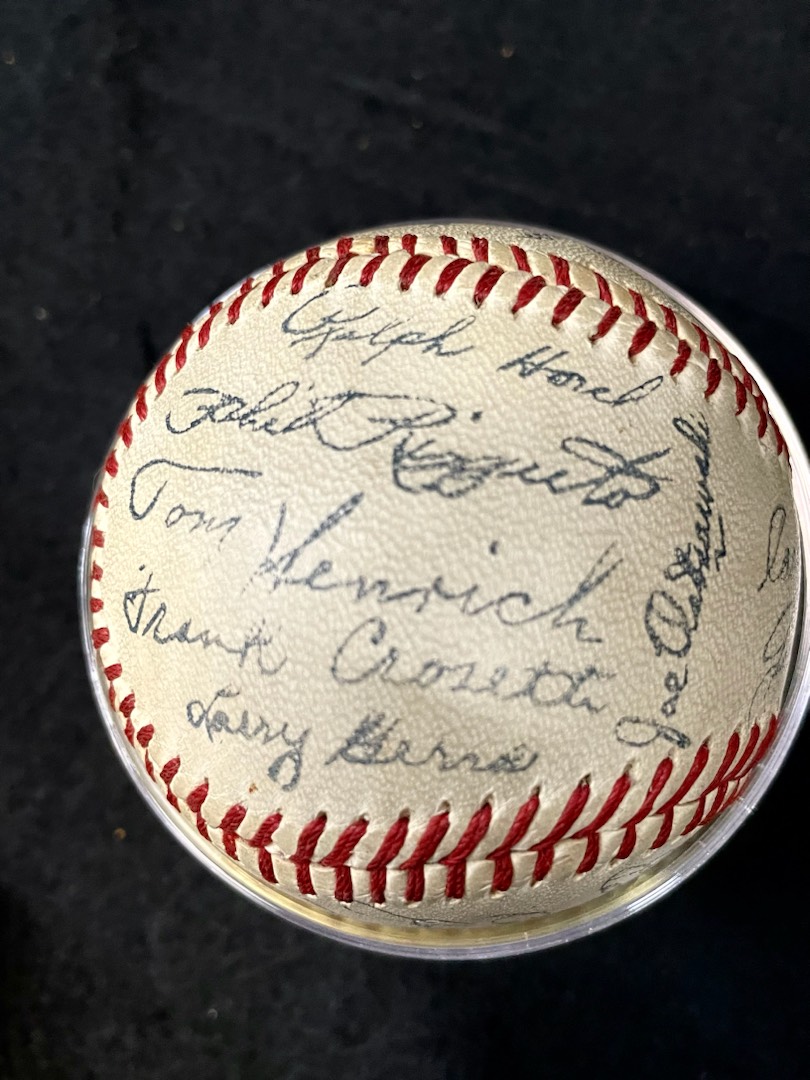 Ralph Houk
Phil Rizzuto
Tom Henrich
Frank Crosetti
Larry Berra
Joe Ostrowski